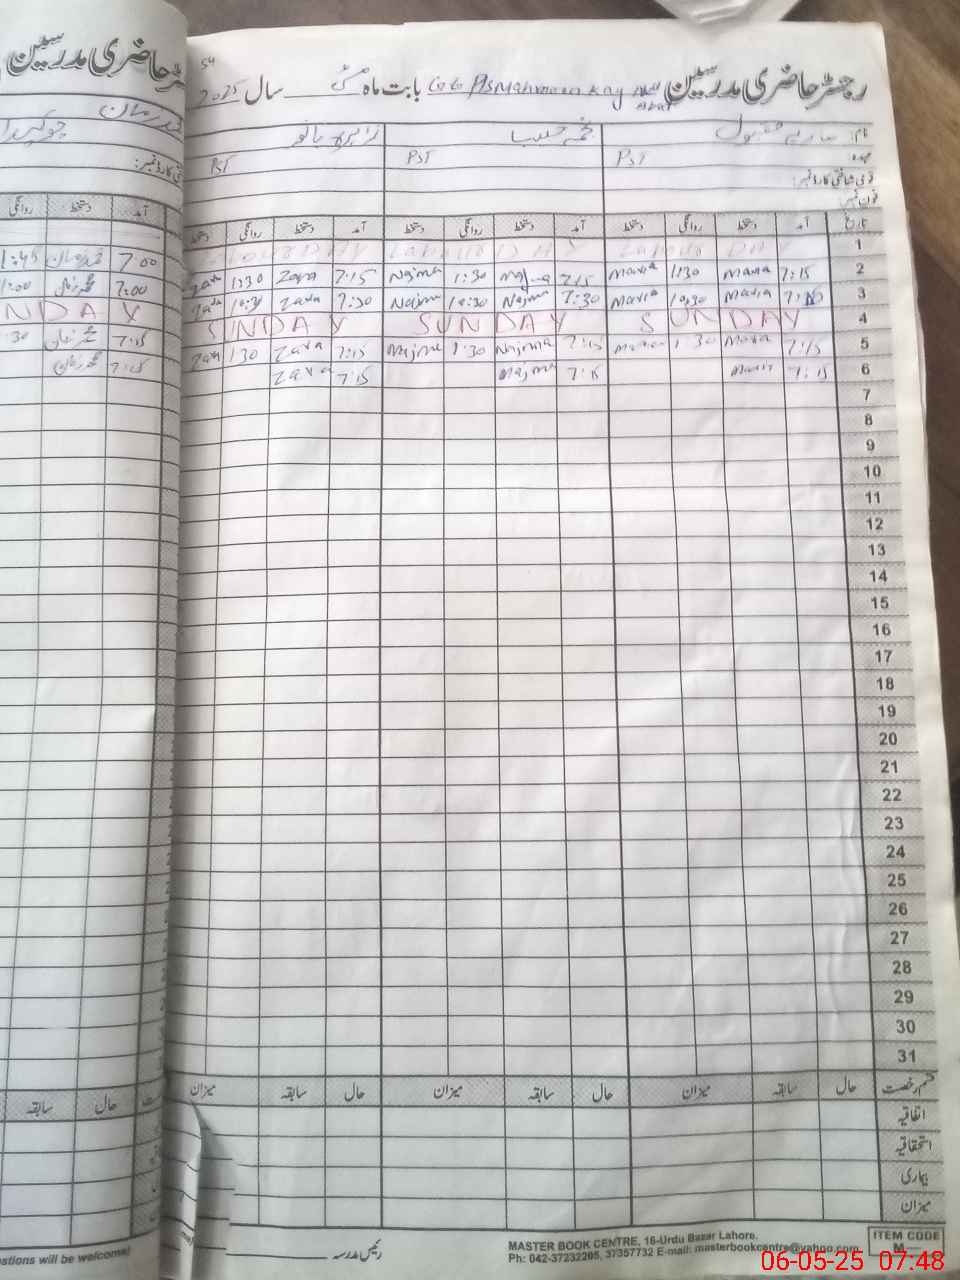 رجسٹر حاضری مدرسین GG P/S Mahmoon Kay بابت ماہ مئی سال 2025
54
نام: ماریہ مقبول نجمہ حبیب زاہرہ بانو
عہدہ: PST PST PST
قومی شناختی کارڈ نمبر:
فون نمبر:
تاریخ آمد دستخط روانگی دستخط آمد دستخط روانگی دستخط آمد دستخط روانگی دستخط
1 Labour DAY Labour DAY Labour DAY
2 7:15 Maria 1:30 Maria 7:15 Najma 1:30 Najma 7:15 Zara 1:30 Zara
3 7:15 Maria 10:30 Maria 7:30 Najma 10:30 Najma 7:30 Zara 10:30 Zara
4 SUNDAY SUNDAY SUNDAY
5 7:15 Maria 1:30 Maria 7:15 Najma 1:30 Najma 7:15 Zara 1:30 Zara
6 7:15 Maria 7:15 Najma 7:15 Zara
7
8
9
10
11
12
13
14
15
16
17
18
19
20
21
22
23
24
25
26
27
28
29
30
31
قسم رخصت حال سابقہ میزان حال سابقہ میزان حال سابقہ میزان
اتفاقیہ
استحقاقیہ
بیماری
میزان
رئیس مدرسہ
MASTER BOOK CENTRE, 16-Urdu Bazar Lahore.
Ph: 042-37232205, 37357732 E-mail: masterbookcentre@yahoo.com
ITEM CODE
M
رجسٹر حاضری مدرسین
چوکیدار
آمد دستخط روانگی
7:00 1:45
7:00 1:00
NDAY
7:15 30
7:15
حال سابقہ
estions will be welcome!
06-05-25 07:48